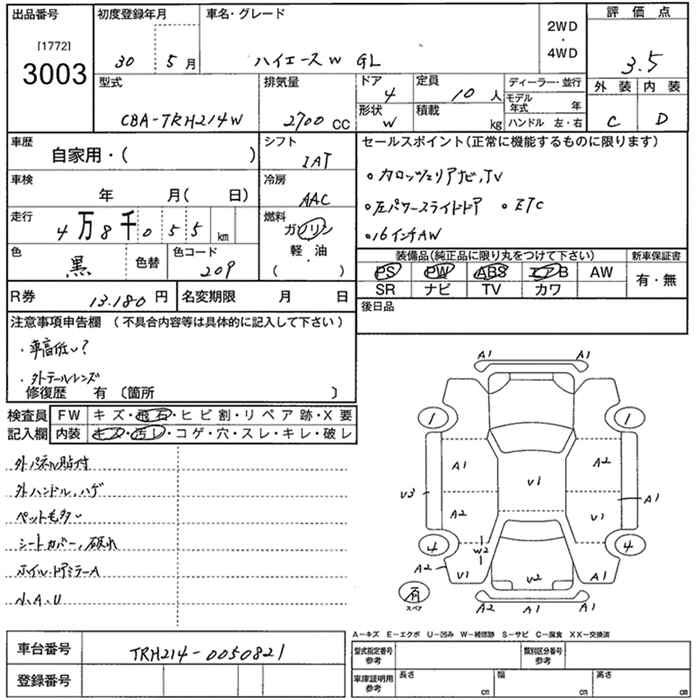 出品番号 初度登録年月 車名・グレード 2WD・4WD 評価点
[1772] 3003 30 5月 ハイエースW GL 3.5
型式 排気量 ドア 4 定員 10人 ディーラー・並行 外装 内装
CBA-TRH214W 2700CC 形状 W 積載 kg モデル年式 年 C D
ハンドル 左・右
車歴 シフト セールスポイント(正常に機能するものに限ります)
自家用・( ) IAT
・カロッツェリアナビ,TV
車検 冷房
年 月( 日) AAC ・左パワースライドドア ・ETC
走行 燃料
4万8千055km ガソリン ・16インチAW
軽・油
( ・ )
色 黒 色替 色コード 209 装備品(純正品に限り丸をつけて下さい) 新車保証書
PS PW ABS エアB AW 有・無
SR ナビ TV カワ
R券 13.180円 名変期限 月 日 後日品
注意事項申告欄 (不具合内容等は具体的に記入して下さい)
・車高低い?
・外テールレンズ
修復歴 有 〔箇所 〕
検査員 FW キズ・飛石・ヒビ割・リペア跡・X要
記入欄 内装 キズ・汚レ・コゲ・穴・スレ・キレ・破レ
外パネル貼付
外ハンドル,ハゲ
ペット毛多い
シートカバー,破れ
ホイル・ドアミラーA
小,A,U
A1 A1
1 1
A1 A2
U3 U1 A1
A2 U1
4 W2 4
A2 U1 U2 A1
有 スペア A2 A1 A1
A-キズ E-エクボ U-凹み W-補修跡 S-サビ C-腐食 XX-交換済
車台番号 TRH214-0050821 型式指定番号参考 類別区分番号参考
登録番号 車庫証明用参考 長さ cm 幅 cm 高さ cm